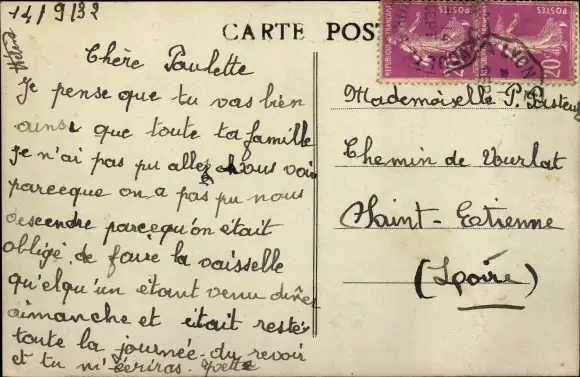 14/9/32
CARTE POST
Chère Paulette
Je pense que tu vas bien
ainsi que toute ta famille
Je n'ai pas pu allez vous voir
parceeque on a pas pu nous
descendre parceequ'on était
obligé de faire la vaisselle
qu'elqu'un étant venu dîner
dimanche et était resté
toute la journée. du revoir
et tu m'écriras. Yvette
Mademoiselle P.
Chemin de
Saint-Etienne
(Loire)
REPUBLIQUE FRANÇAISE
POSTES
20c
REPUBLIQUE FRANÇAISE
POSTES
20c
LYON